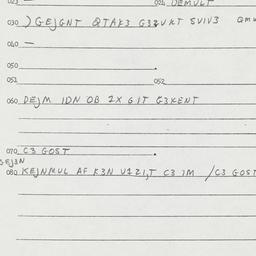 023 — 024 DEMULT
030 ) GEJGNT QTAK3 G3 VKT SVIV3
040 —
050
051 052
060 DEJM IDN OB 2X GIT G3KENT
070 C3 GOST
SEJ3N
080 KEJNMUL AF K3N V1Z1,T C3 IM /C3 GOST